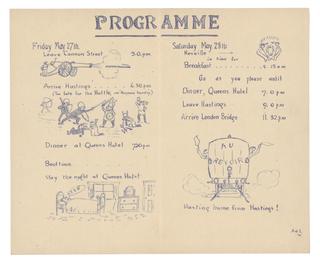 PROGRAMME
Friday May 27th.
Leave Cannon Street 3.0 p.m.
Arrive Hastings 4.30 p.m
(Too late for the Battle,
Dinner at Queens Hotel 7.30 p.m
Bedtime.
Stay the night at Queens Hotel.
Saturday May 28th.
Reveille
in time for
Breakfast
Go as you please until
Dinner, Queens Hotel 7.0 p.m
Leave Hastings 9.0 p.m
Arrive London Bridge 11.32 p.m
AU
REVOIR
Hasting home from Hastings!